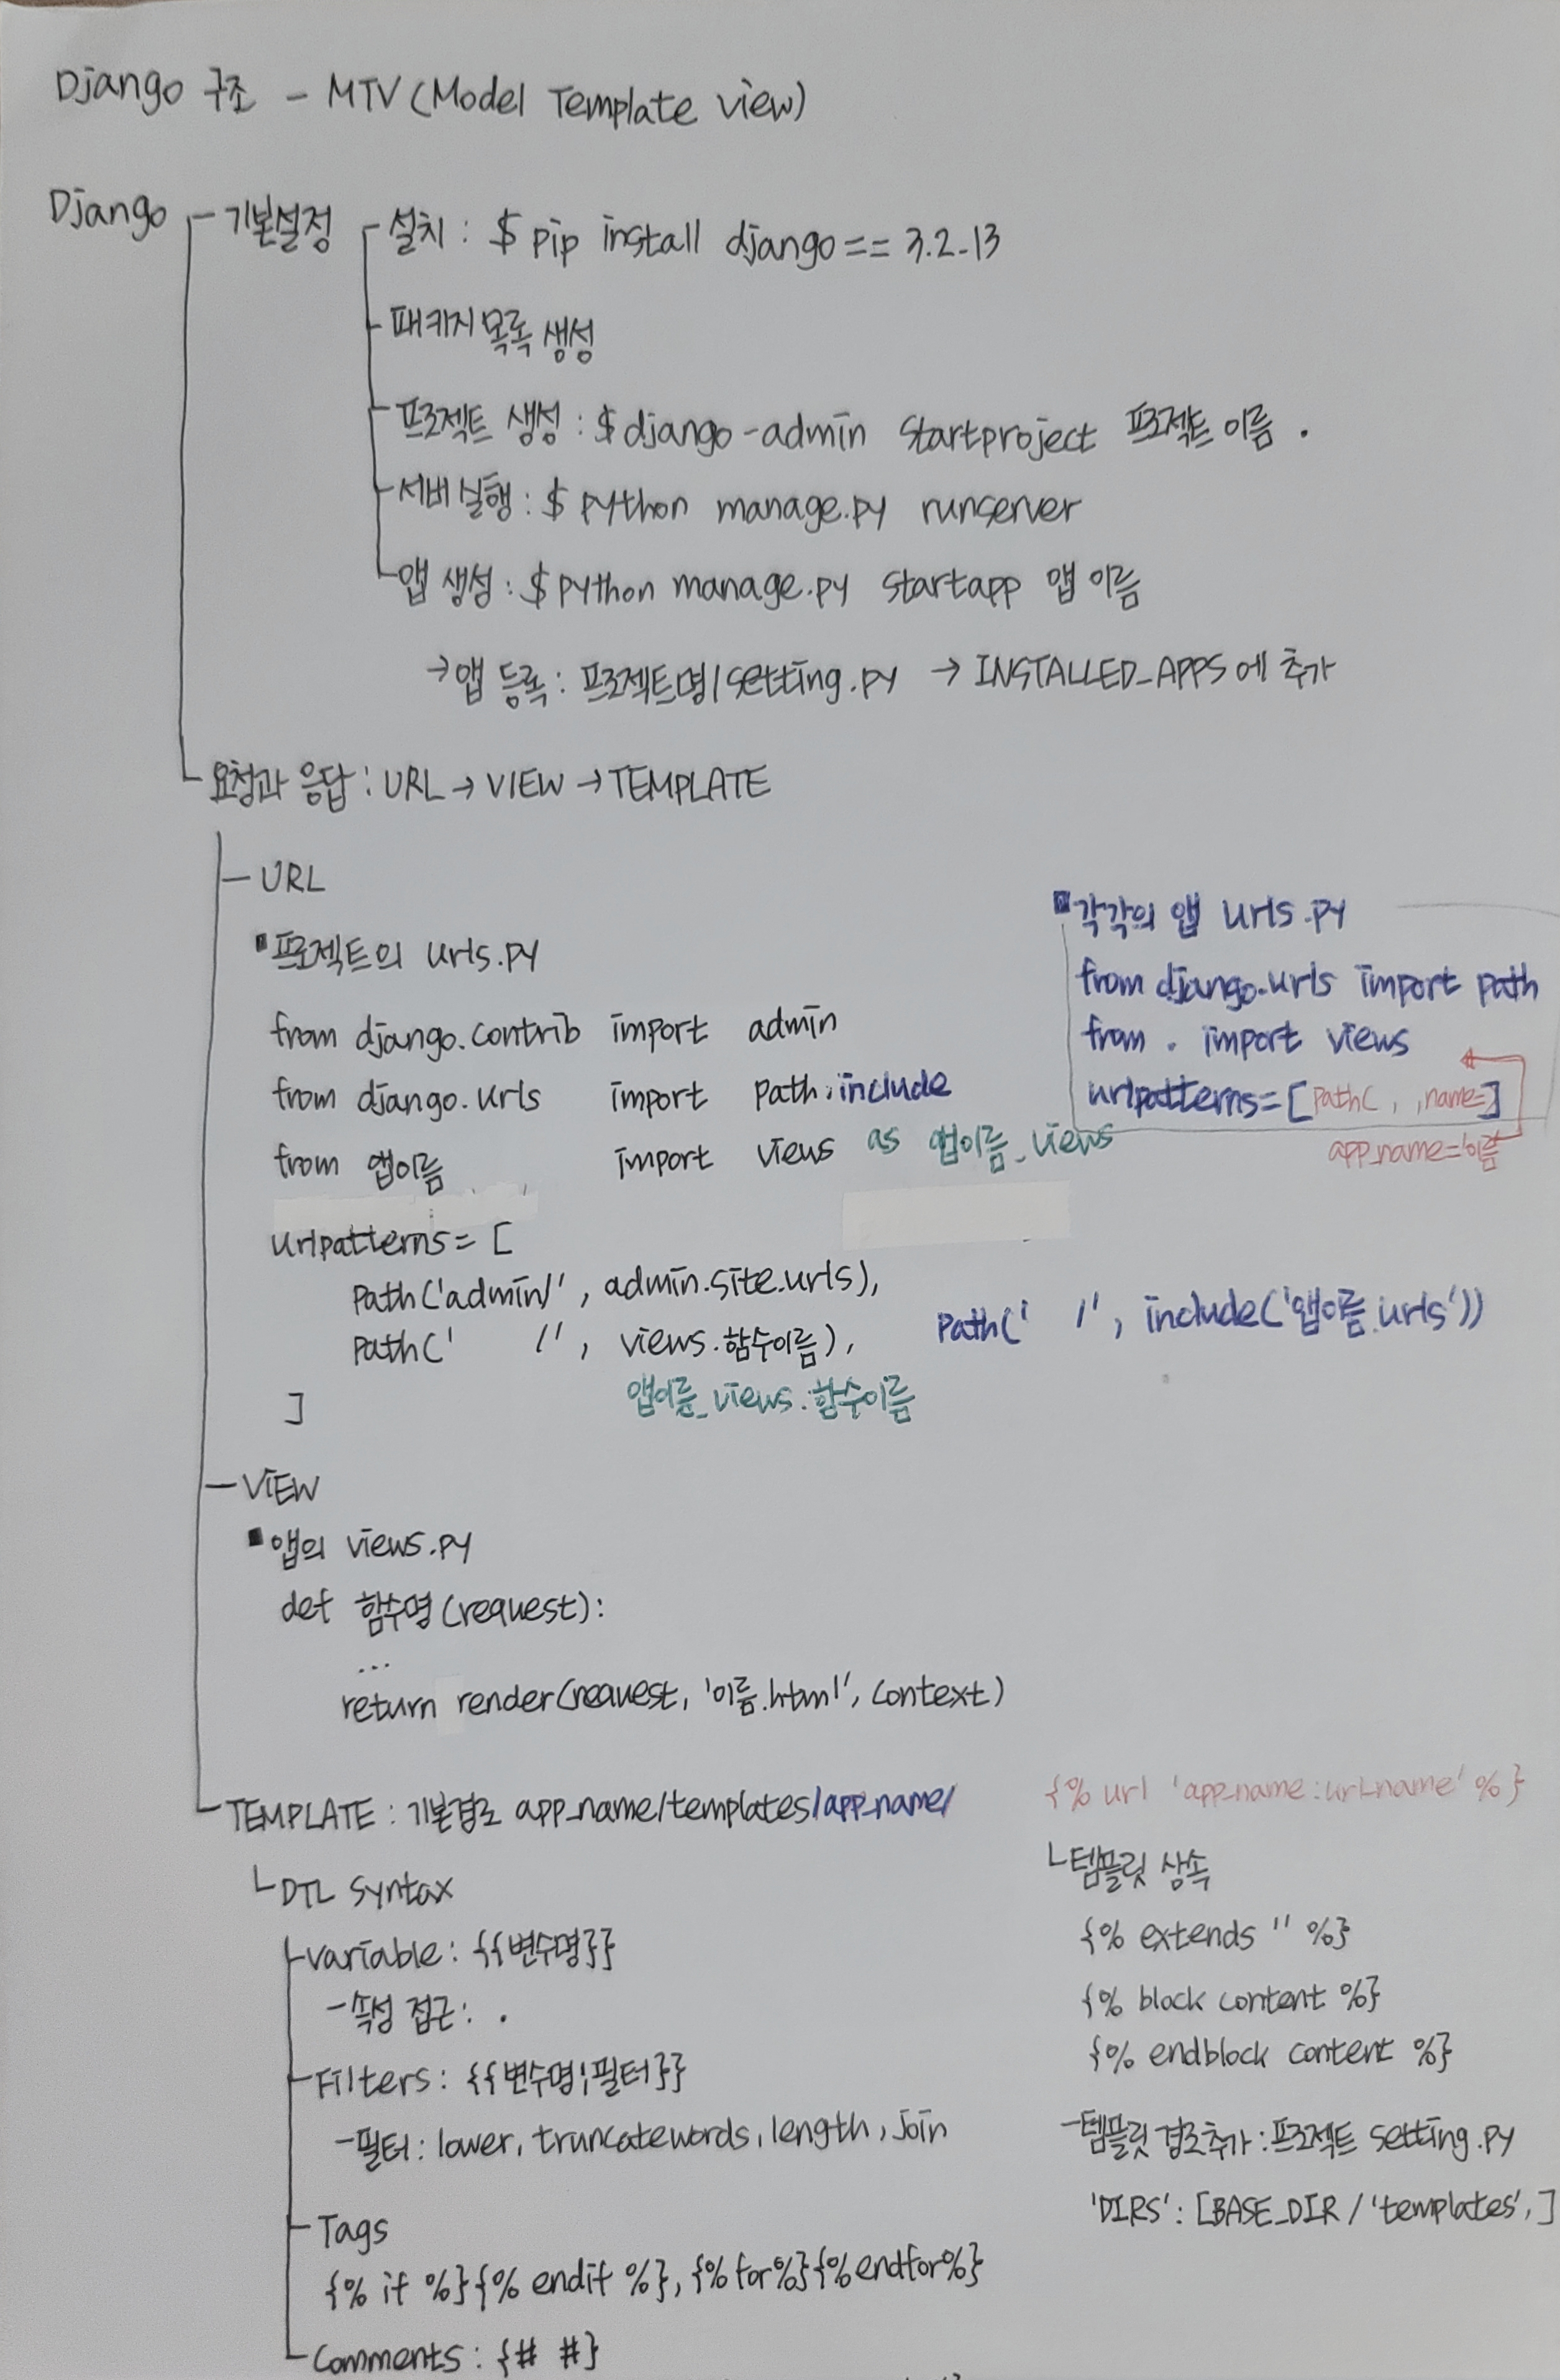 Django 구조 - MTV (Model Template view)
Django
기본설정
설치 : $ pip install django == 3.2.13
패키지 목록 생성
프로젝트 생성 : $ django-admin startproject 프로젝트 이름 .
서버 실행 : $ python manage.py runserver
앱 생성 : $ python manage.py startapp 앱 이름
→ 앱 등록 : 프로젝트명/setting.py → INSTALLED_APPS 에 추가
요청과 응답 : URL → VIEW → TEMPLATE
URL
▪프로젝트의 urls.py
from django.contrib import admin
from django.urls import path, include
from 앱이름 import views as 앱이름_views
urlpatterns = [
path('admin/', admin.site.urls),
path(' /', views.함수이름), path(' /', include('앱이름.urls'))
앱이름_views.함수이름
]
▪각각의 앱 urls.py
from django.urls import path
from . import views
urlpatterns = [path( , ,name=]
app_name='이름
VIEW
▪앱의 views.py
def 함수명 (request) :
...
return render(request, '이름.html', context)
TEMPLATE : 기본경로 app_name/templates/app_name/
└ DTL syntax
variable : {{변수명}}
- 속성 접근 : .
Filters : {{변수명|필터}}
- 필터 : lower, truncatewords, length, join
Tags
{% if %}{% endif %}, {% for%}{%endfor%}
Comments : {# #}
{% url 'app_name:url_name' %}
└ 템플릿 상속
{% extends '' %}
{% block content %}
{% endblock content %}
- 템플릿 경로추가 : 프로젝트 setting.py
'DIRS' : [BASE_DIR / 'templates', ]